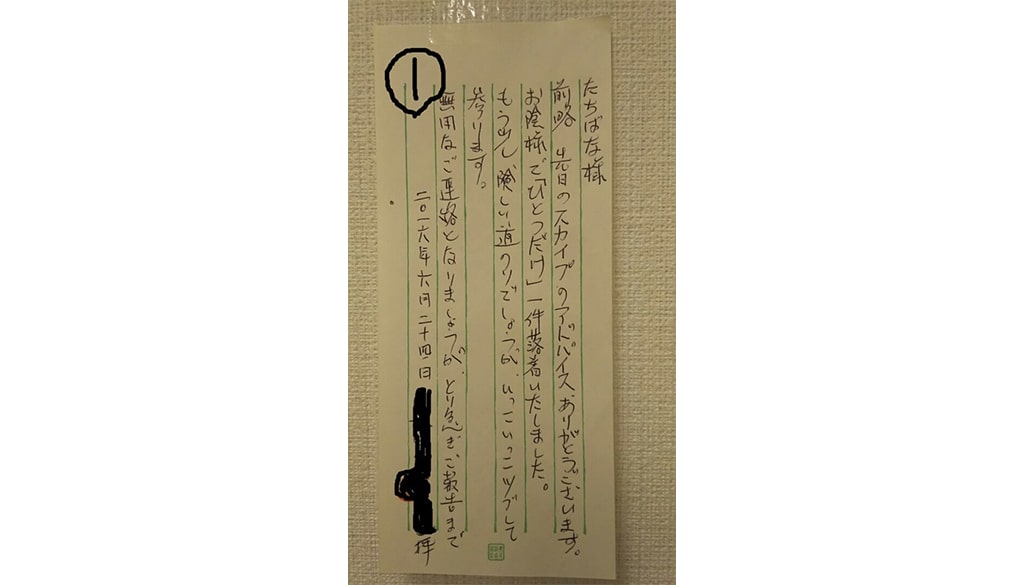 ①
たちばな様
前略 先日のスカイプのアドバイス、ありがとうございます。
お陰様で「ひとつだけ」一件落着いたしました。
もう少し険しい道のりでしょうが、いっこいっこツブして
参ります。
無用なご連絡となりましょうが、とり急ぎご報告まで
二〇一六年六月二十四日
拝